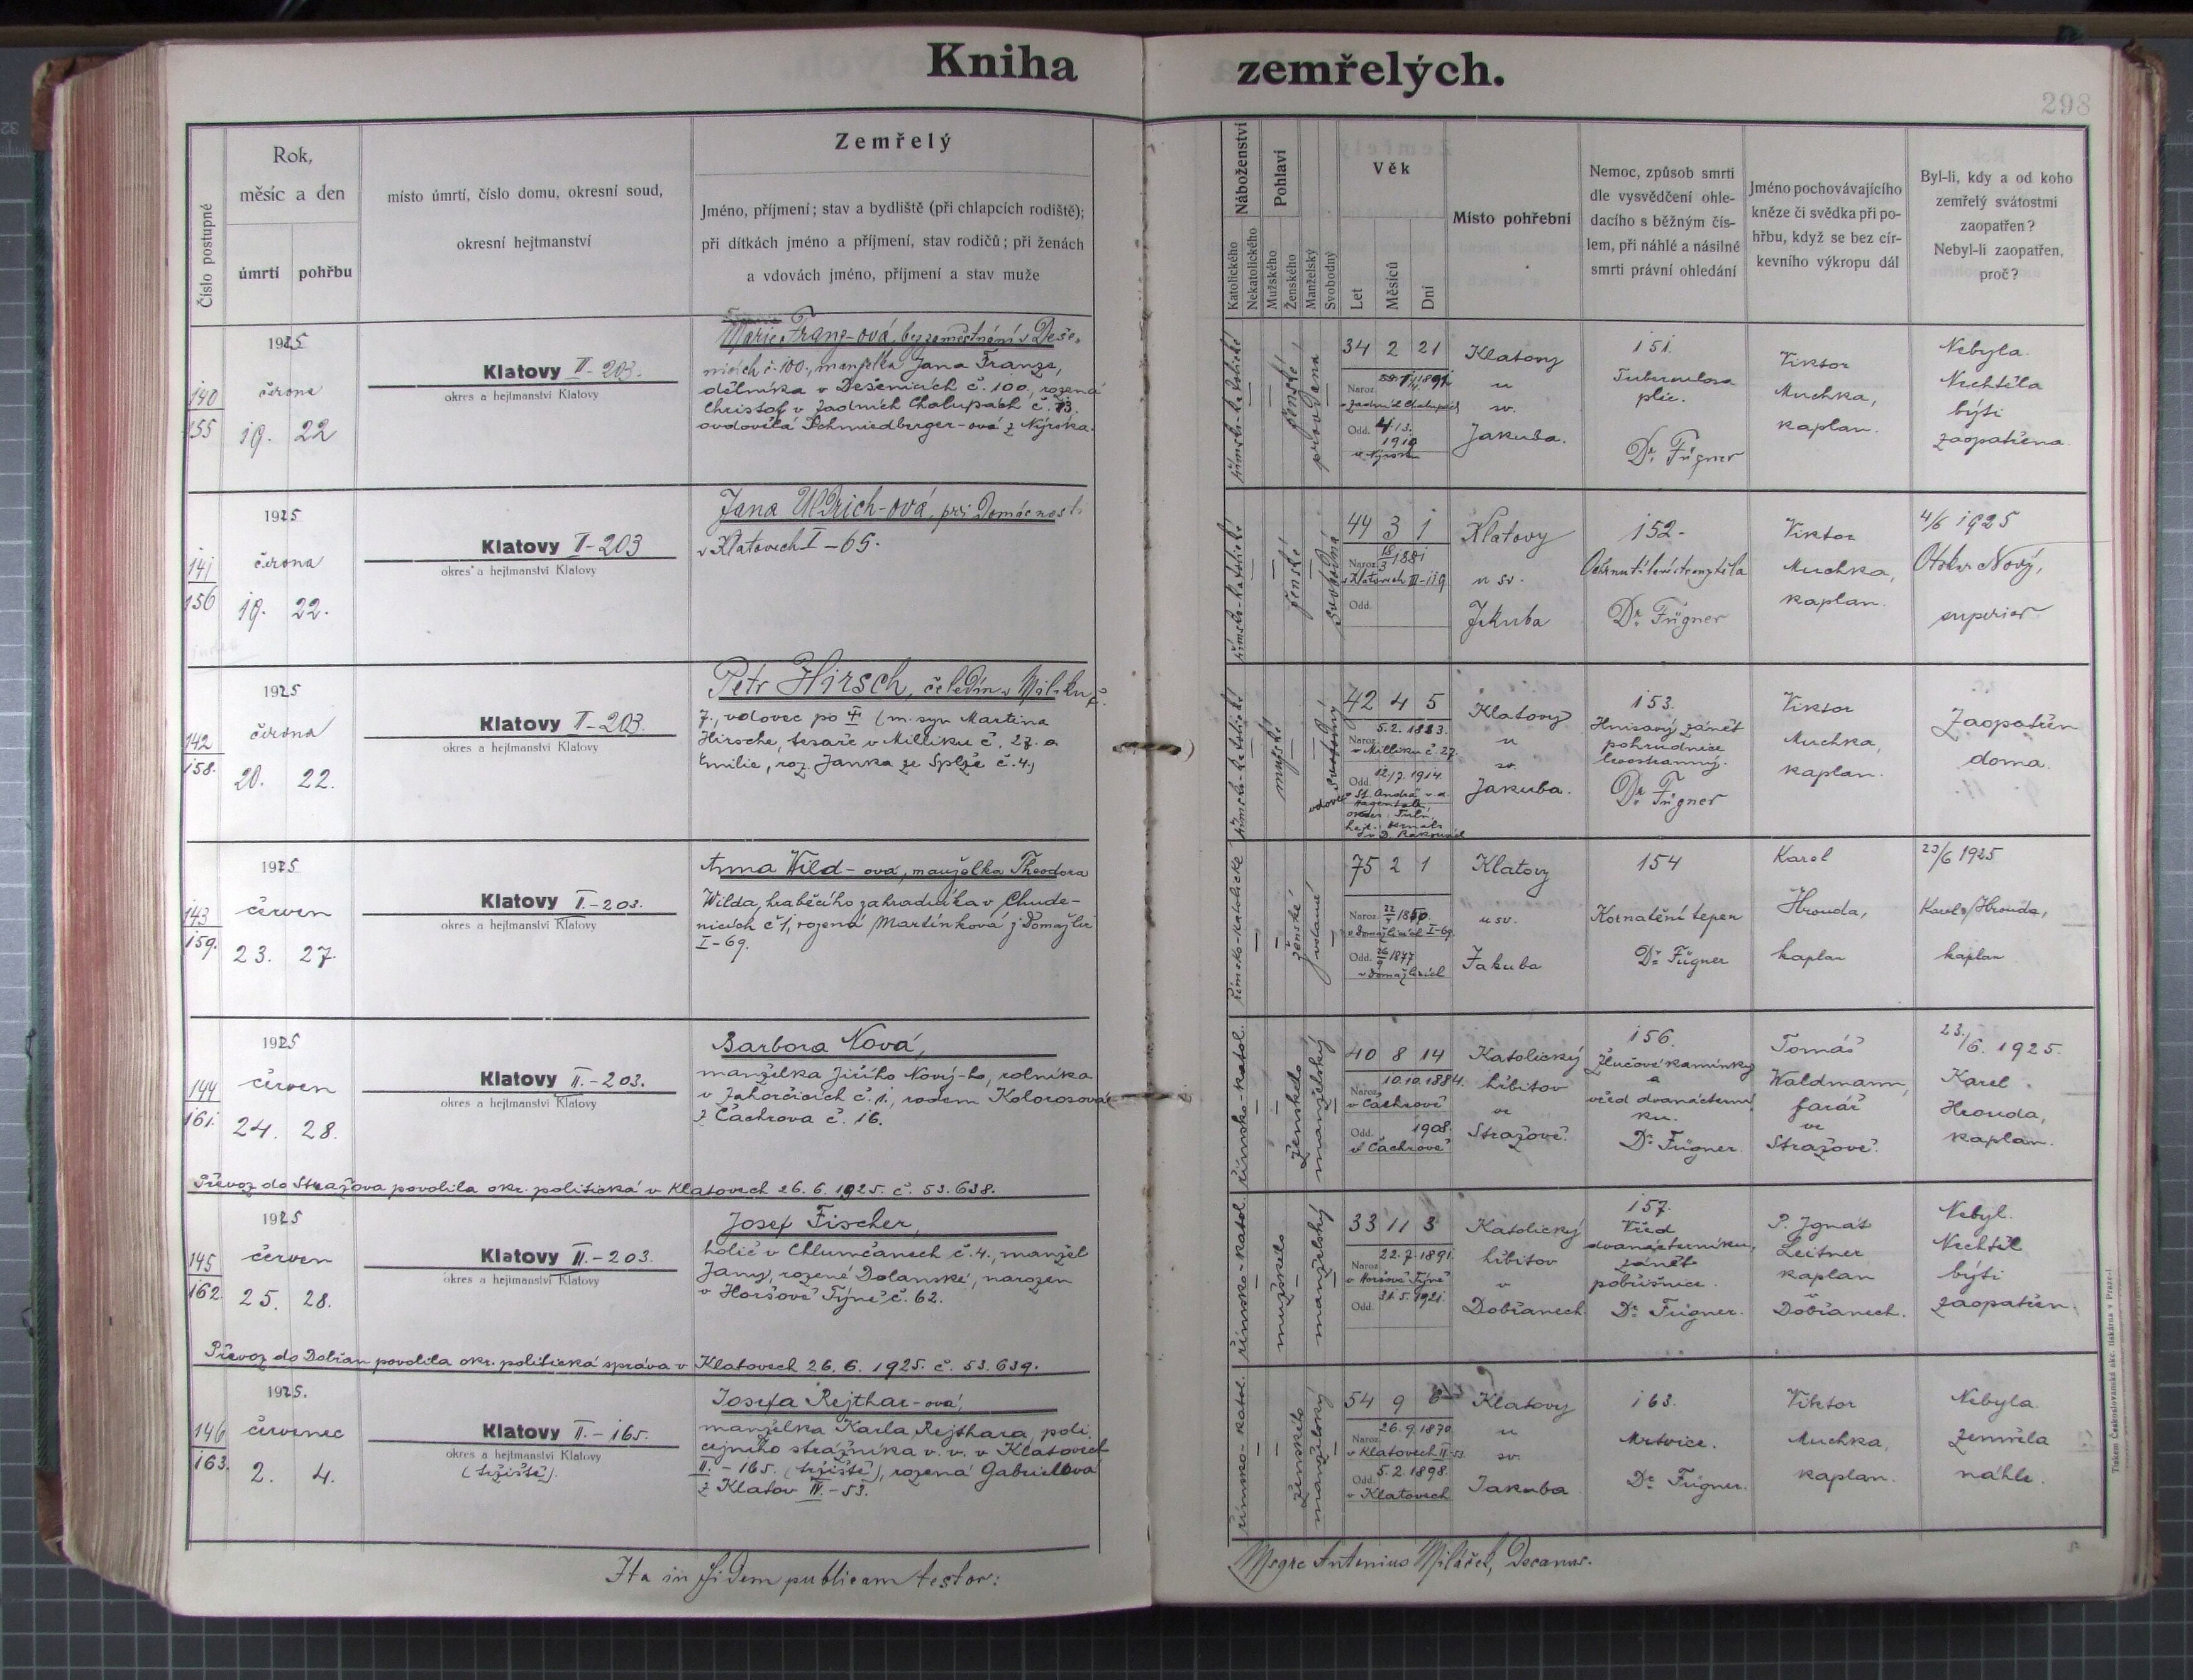 Kniha zemřelých.
298
Číslo postupné
Rok,
měsíc a den
úmrtí
pohřbu
místo úmrtí, číslo domu, okresní soud,
okresní hejtmanství
Zemřelý
Jméno, příjmení; stav a bydliště (při chlapcích rodiště);
při dítkách jméno a příjmení, stav rodičů; při ženách
a vdovách jméno, příjmení a stav muže
Náboženství
Katolického
Nekatolického
Pohlaví
Mužského
Ženského
Manželský
Svobodný
Věk
Let
Měsíců
Dní
Místo pohřební
Nemoc, způsob smrti
dle vysvědčení ohle-
dacího s běžným čís-
lem, při náhlé a násilné
smrti právní ohledání
Jméno pochovávajícího
kněze či svědka při po-
hřbu, když se bez cír-
kevního výkropu dál
Byl-li, kdy a od koho
zemřelý svátostmi
zaopatřen?
Nebyl-li zaopatřen,
proč?
140
155
1925
června
19. 22
Klatovy II-203.
okres a hejtmanství Klatovy
Marie Franz-ová, bez zaměstnání v Deše-
nicích č. 100, manželka Jana Franze,
dělníka v Dešenicích č. 100, rozená
Christof v Zadních Chalupách č. 13.
ovdovělá Schmiedberger-ová z Nýrska.
římsko-katolické
ženské
provdaná
34 2 21
Naroz. 1891
v Zadních Chalupách
č. 13.
Odd.
1919
v Nýrsku
Klatovy
u
sv.
Jakuba.
151.
Tuberculosa
plic.
Dr. Fügner
Viktor
Muchka,
kaplan.
Nebyla.
Nechtěla
býti
zaopatřena.
141
156
1925
června
19. 22.
Klatovy II-203
okres a hejtmanství Klatovy
Jana Uldrich-ová, při domácnosti
v Klatovech I-65.
římsko-katolické
ženské
svobodná
44 3 1
Naroz. 18/3 1881
v Klatovech III-119
Odd.
Klatovy
u sv.
Jakuba
152.
Ochrnutí levé strany těla
Dr. Fügner
Viktor
Muchka,
kaplan.
4/6 1925
Otakar Nový,
superior
142
158.
1925
června
20. 22.
Klatovy II-203.
okres a hejtmanství Klatovy
Petr Hirsch, čeledín v Miliku č.
7., vdovec po † (m. syn Martina
Hirsche, tesaře v Milliku č. 27. a
Emilie, roz. Janka ze Splže č. 4.,
římsko-katolické
mužské
svobodný
vdovec
42 4 5
5.2. 1883.
Naroz.
v Milliku č. 27.
Odd. 12./7. 1914
v St. Andrä v. d.
Hagental
okres: Tuln,
v D. Rakousích
Klatovy
u
sv.
Jakuba.
153.
Hnisavý zánět
pohrudnice
levostranný.
Dr. Fügner
Viktor
Muchka,
kaplan.
Zaopatřen
doma.
143
159.
1925
červen
23. 27.
Klatovy II.-203.
okres a hejtmanství Klatovy
Anna Wild-ová, manželka Theodora
Wilda, hraběcího zahradníka v Chude-
nicích č 1, rozená Martínková z Domažlic
I-69.
římsko-katolické
ženské
vdané
75 2 1
Naroz. 22/4 1850.
v Domažlicích I-69.
Odd. 26/9 1877
v Domažlicích
Klatovy
u sv.
Jakuba
154
Kornatění tepen
Dr. Fügner
Karel
Hrouda,
kaplan
23/6 1925
Karel Hrouda,
kaplan
144
161.
1925
červen
24. 28.
Klatovy II.-203.
okres a hejtmanství Klatovy
Barbora Nová,
manželka Jiřího Nový-ho, rolníka
v Zahorčicích č. 1., rodem Kolorosová
z Čachrova č. 16.
římsko-katol.
ženského
manželský
40 8 14
10.10.1884.
Naroz.
v Čachrově
Odd. 1908.
v Čachrově
Katolický
hřbitov
ve
Strážově.
156.
Žlučové kamínky
a
vřed dvanácterní-
ku.
Dr. Fügner.
Tomáš
Waldmann,
farář
ve
Strážově.
23./6. 1925.
Karel
Hrouda,
kaplan.
Převoz do Strážova povolila okr. politická v Klatovech 26. 6. 1925. č. 53.638.
145
162.
1925
červen
25. 28.
Klatovy II.-203.
okres a hejtmanství Klatovy
Josef Fischer,
holič v Chlumčanech č. 4., manžel
Jany, rozené Dolanské, narozen
v Horšově Týně č. 62.
římsko-katol.
mužského
manželský
33 11 3
22.7.1891.
Naroz.
v Horšově Týně
31.5.1921.
Odd.
Katolický
hřbitov
v
Dobřanech
157.
Vřed
dvanácterníku,
zánět
pobřišnice.
Dr. Fügner.
P. Ignát
Leitner
kaplan
v
Dobřanech.
Nebyl.
Nechtěl
býti
zaopatřen.
Převoz do Dobřan povolila okr. politická správa v Klatovech 26. 6. 1925. č. 53.639.
146
163.
1925.
červenec
2. 4.
Klatovy II.-165.
okres a hejtmanství Klatovy
(tržiště).
Josefa Rejthar-ová,
manželka Karla Rejthara, poli-
cejního strážníka v. v. v Klatovech
II.-165. (tržiště), rozená Gabrielová
z Klatov IV.-53.
římsko-katol.
ženského
manželský
54 9 6
26.9.1870.
Naroz.
v Klatovech IV-53.
Odd. 5.2.1898.
v Klatovech
Klatovy
u
sv.
Jakuba
163.
Mrtvice.
Dr. Fügner.
Viktor
Muchka,
kaplan.
Nebyla.
Zemřela
náhle.
Ita in fidem publicam testor:
Msgre Antonius Miláček, Decanus.
Tiskem Českoslovanská akc. tiskárna v Praze-I